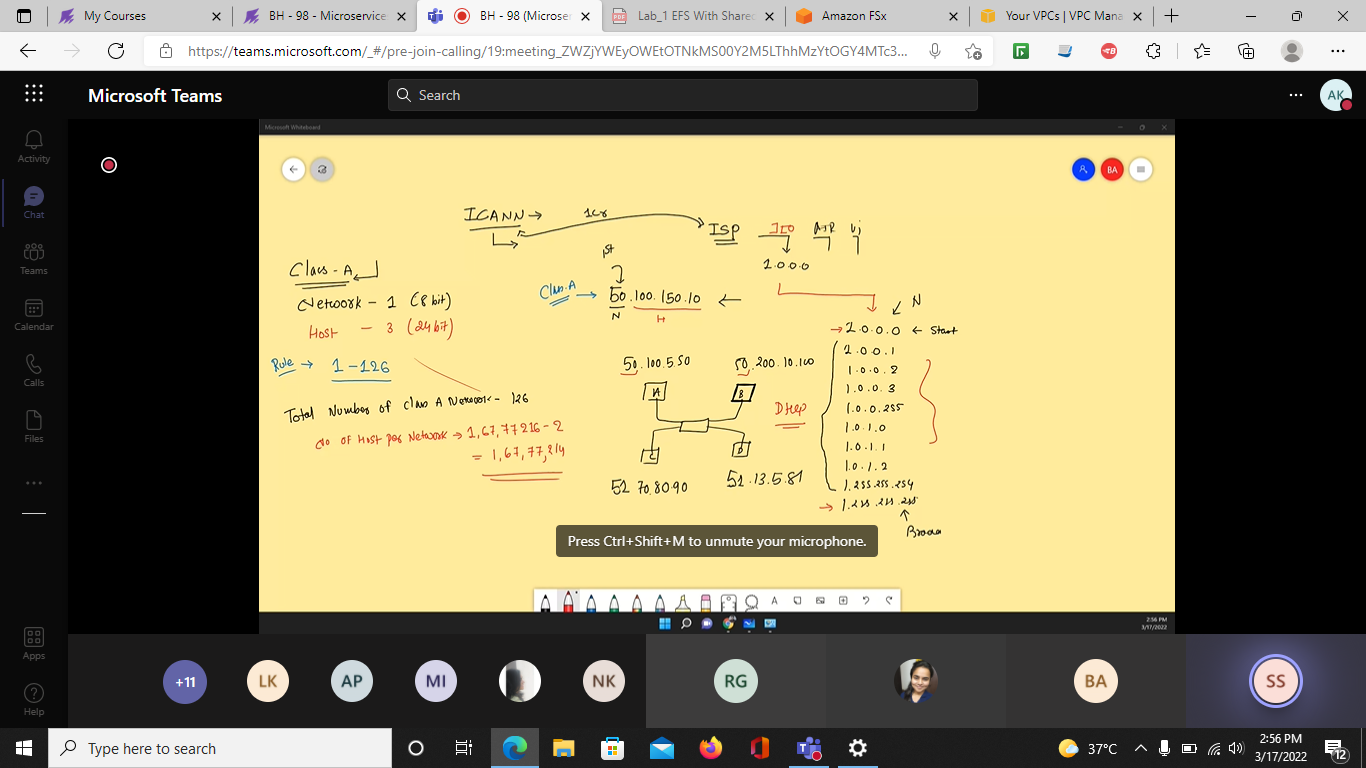 My Courses
BH - 98 - Microservice
BH - 98 (Microser
Lab_1 EFS With Share
Amazon FSx
Your VPCs | VPC Mana
https://teams.microsoft.com/_#/pre-join-calling/19:meeting_ZWZjYWEyOWEtOTNkMS00Y2M5LThhMzYtOGY4MTc3...
Microsoft Teams
Search
AK
Activity
Chat
Teams
Calendar
Calls
Files
Apps
Help
Microsoft Whiteboard
BA
ICANN → 1Cr
ISP JIO AIR Vj
1.0.0.0
Class - A
Network - 1 (8 bit)
Host - 3 (24 bit)
Rule → 1 - 126
Total Number of Class A Network - 126
No of Host per Network → 1,67,77216 - 2
= 1,67,77,214
1st
Class A → 50.100.150.10 ←
N H
50.100.5.50
50.200.10.100
A B
C D
52 70.80.90
52.13.5.81
DHCP
N
→ 2.0.0.0 ← Start
2.0.0.1
1.0.0.2
1.0.0.3
1.0.0.255
1.0.1.0
1.0.1.1
1.0.1.2
1.255.255.254
→ 1.255.255.255
Broad
Press Ctrl+Shift+M to unmute your microphone.
2:56 PM
3/17/2022
+11
LK
AP
MI
NK
RG
BA
SS
Type here to search
37°C
2:56 PM
3/17/2022
12